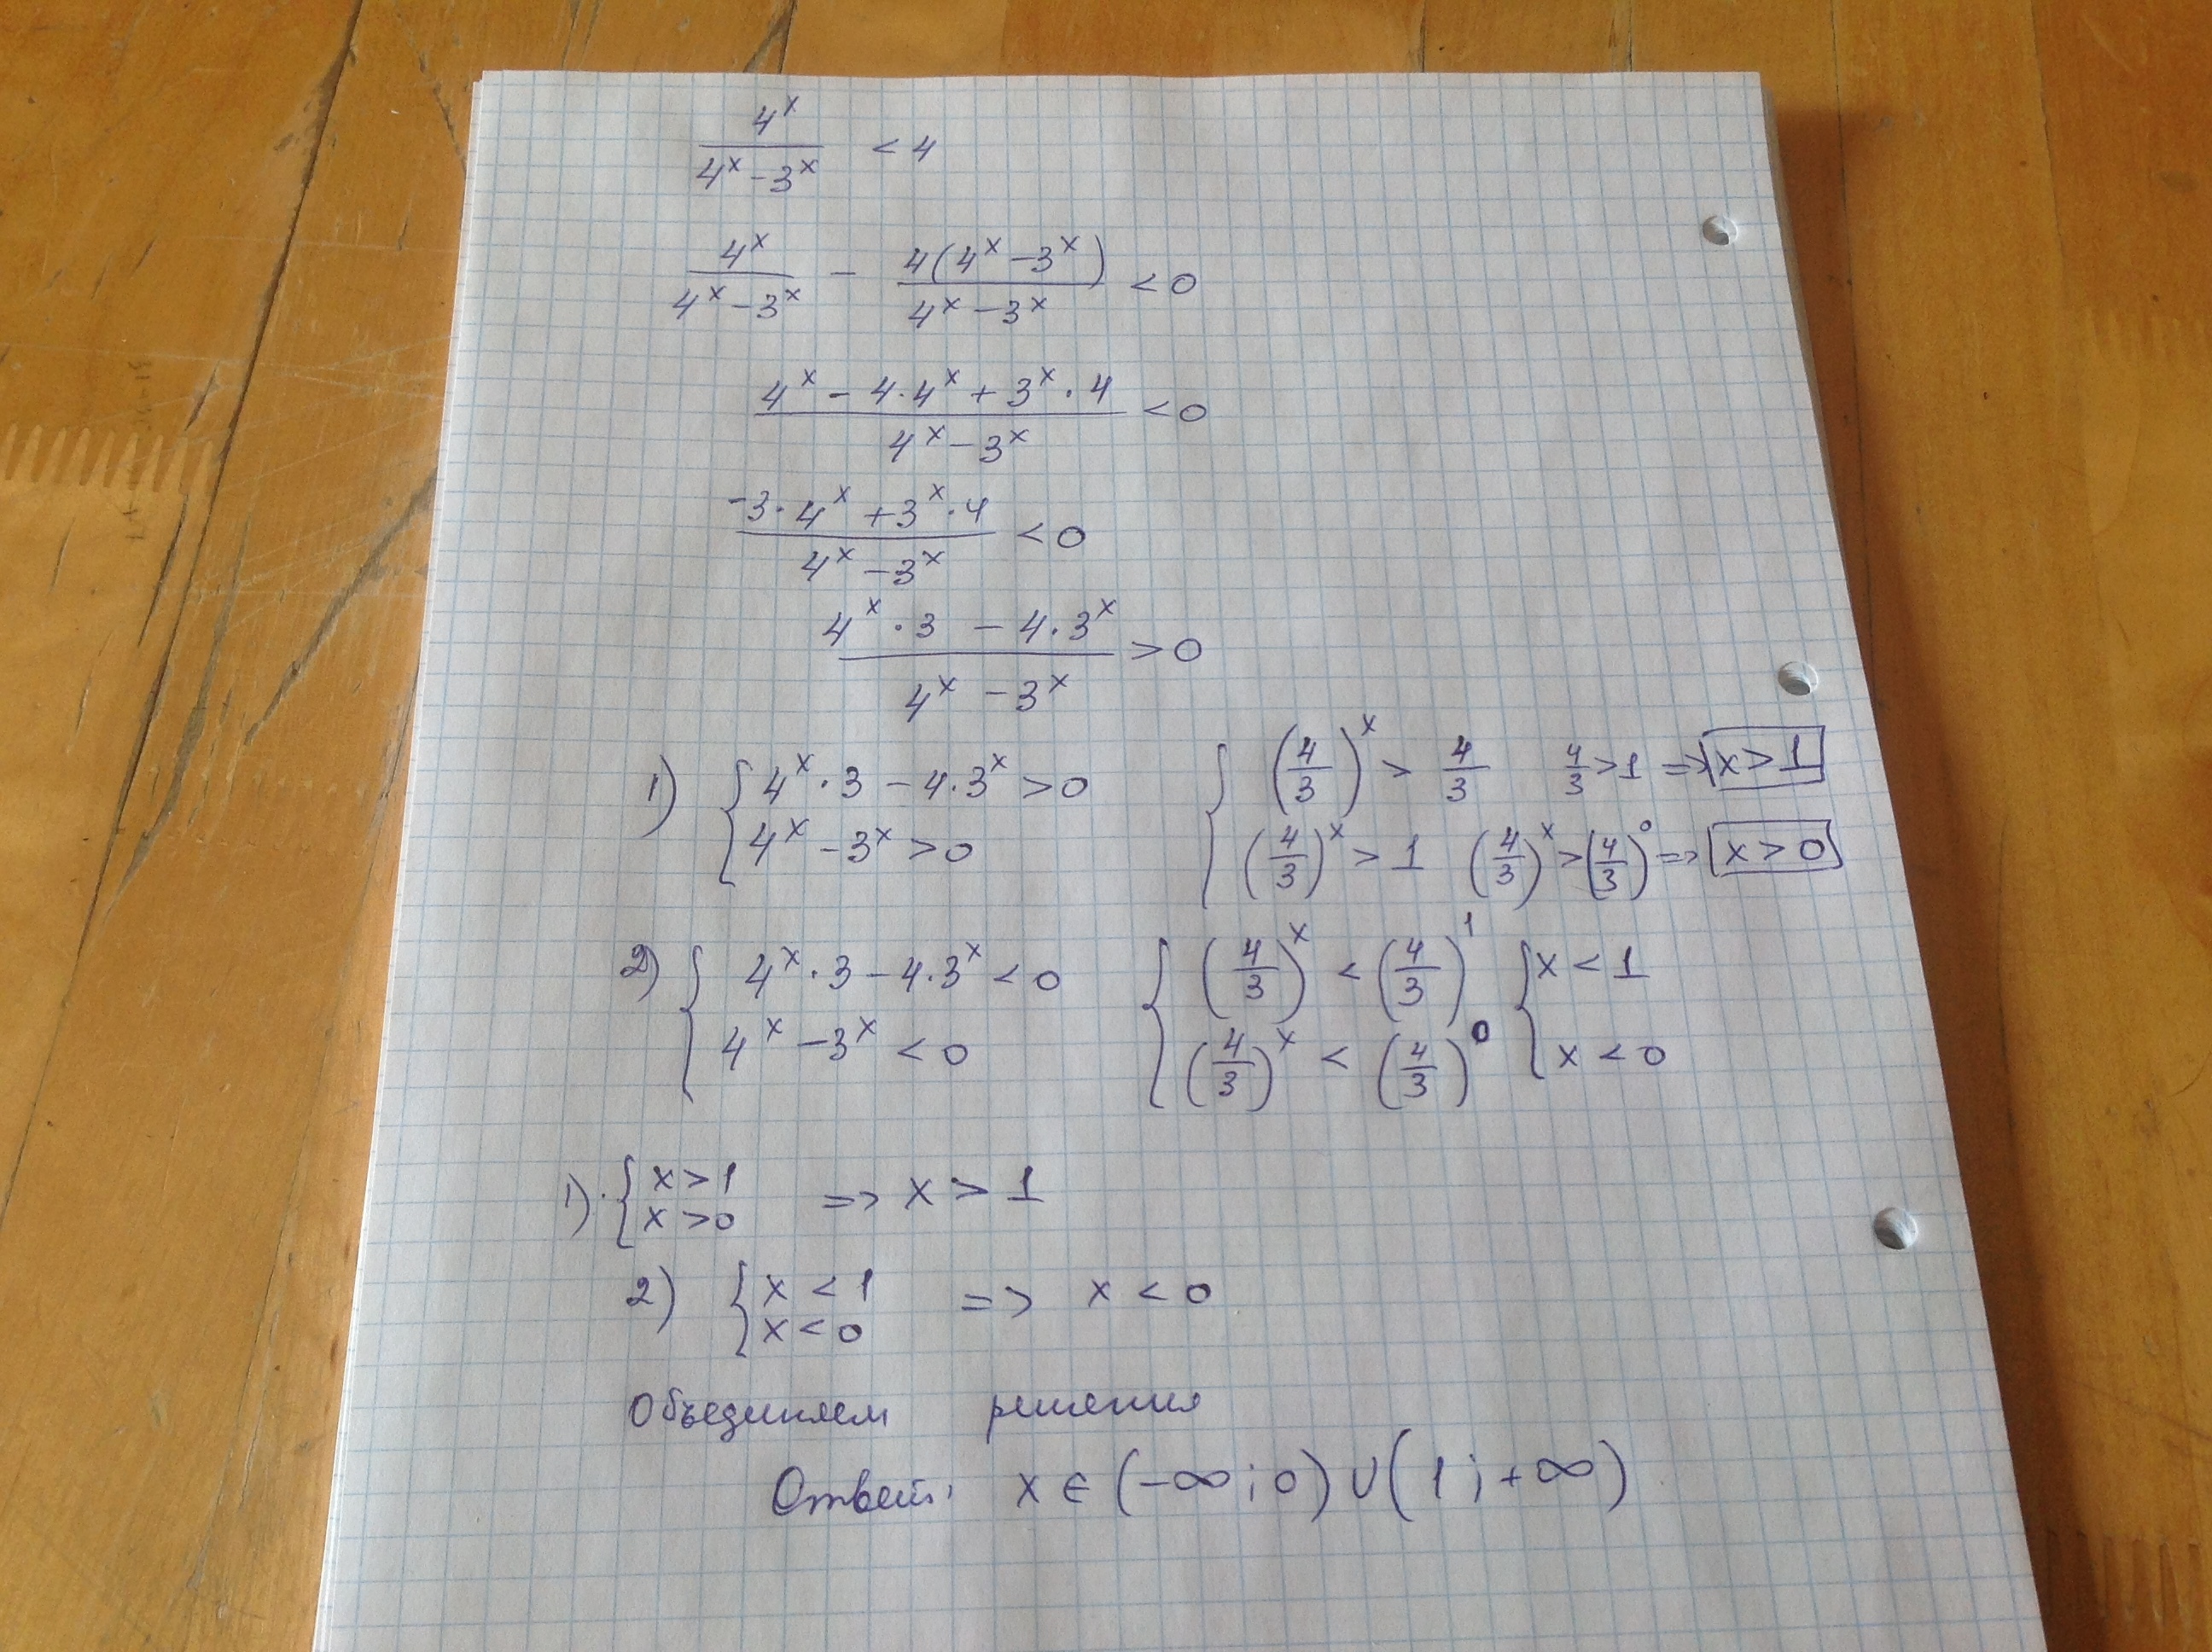 4^x / (4^x − 3^x) < 4
4^x / (4^x − 3^x) − 4(4^x − 3^x) / (4^x − 3^x) < 0
(4^x − 4·4^x + 3^x·4) / (4^x − 3^x) < 0
(−3·4^x + 3^x·4) / (4^x − 3^x) < 0
(4^x·3 − 4·3^x) / (4^x − 3^x) > 0
1) { 4^x·3 − 4·3^x > 0 { (4/3)^x > 4/3 4/3 > 1 => x > 1
4^x − 3^x > 0 (4/3)^x > 1 (4/3)^x > (4/3)^0 => x > 0
2) { 4^x·3 − 4·3^x < 0 { (4/3)^x < (4/3)^1 { x < 1
4^x − 3^x < 0 (4/3)^x < (4/3)^0 x < 0
1) { x > 1 => x > 1
x > 0
2) { x < 1 => x < 0
x < 0
Объединяем решения
Ответ: x ∈ (−∞; 0) ∪ (1; +∞)